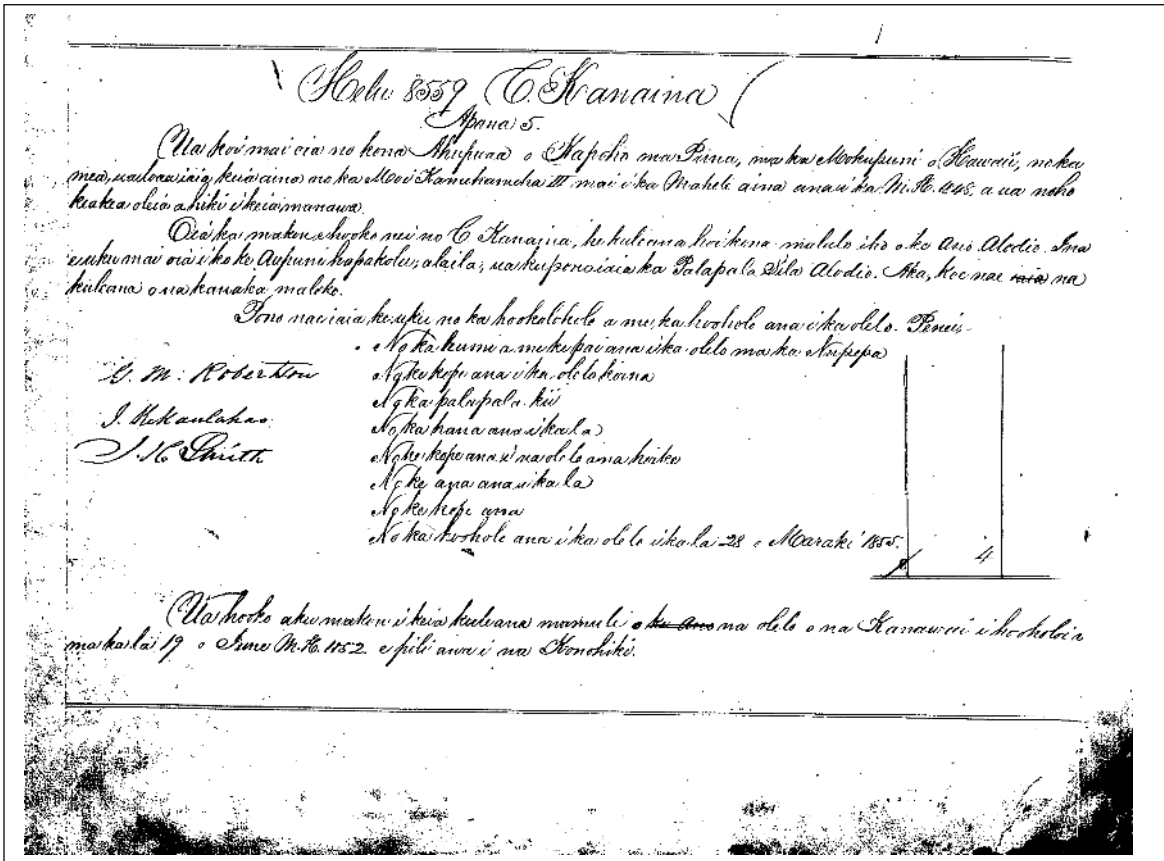 Helu 8559 C. Kanaina
Apana 5.
Ua koi mai eia no kona Ahupuaa o Kapoho ma Puna, ma ka Mokupuni o Hawaii, no ka
mea, ua loaa iaia keia aina no ka Moi Kamehameha III mai i ka Mahele aina ana i ka M.H. 1848. a ua noho
keakea oleia a hiki i keia manawa.
Oia ka makou e hooko nei no C Kanaina, he kuleana hoi kona malalo iho o ke Ano Alodio. Ina
e uku mai oia i ko ke Aupuni hapakolu, alaila, ua ku pono iaia ka Palapala Sila Alodio. Aka, koe nae iaia na
kuleana o na kanaka maloko.
Pono nae iaia, ke uku no ka hookolokolo a me ka hooholo ana i ka olelo. Penei.
No ka kumu a me ke pai ana i ka olelo ma ka Nupepa
No ke kope ana i ka olelo koina
No ka palapala kii
No ka hana ana i ka la
No ke kope ana i na olelo ana hoike
No ke ana ana i ka la
No ke kope ana
No ka hooholo ana i ka olelo i ka la 28 o Maraki 1855.
4
G. M. Robertson
J. Kekaulahao
J. H. Smith
Ua hooko aku makou i keia kuleana mamuli o ke Ano na olelo o na Kanawai i hooholoia
ma ka la 19 o Iune M.H. 1852 e pili ana i na Konohiki.